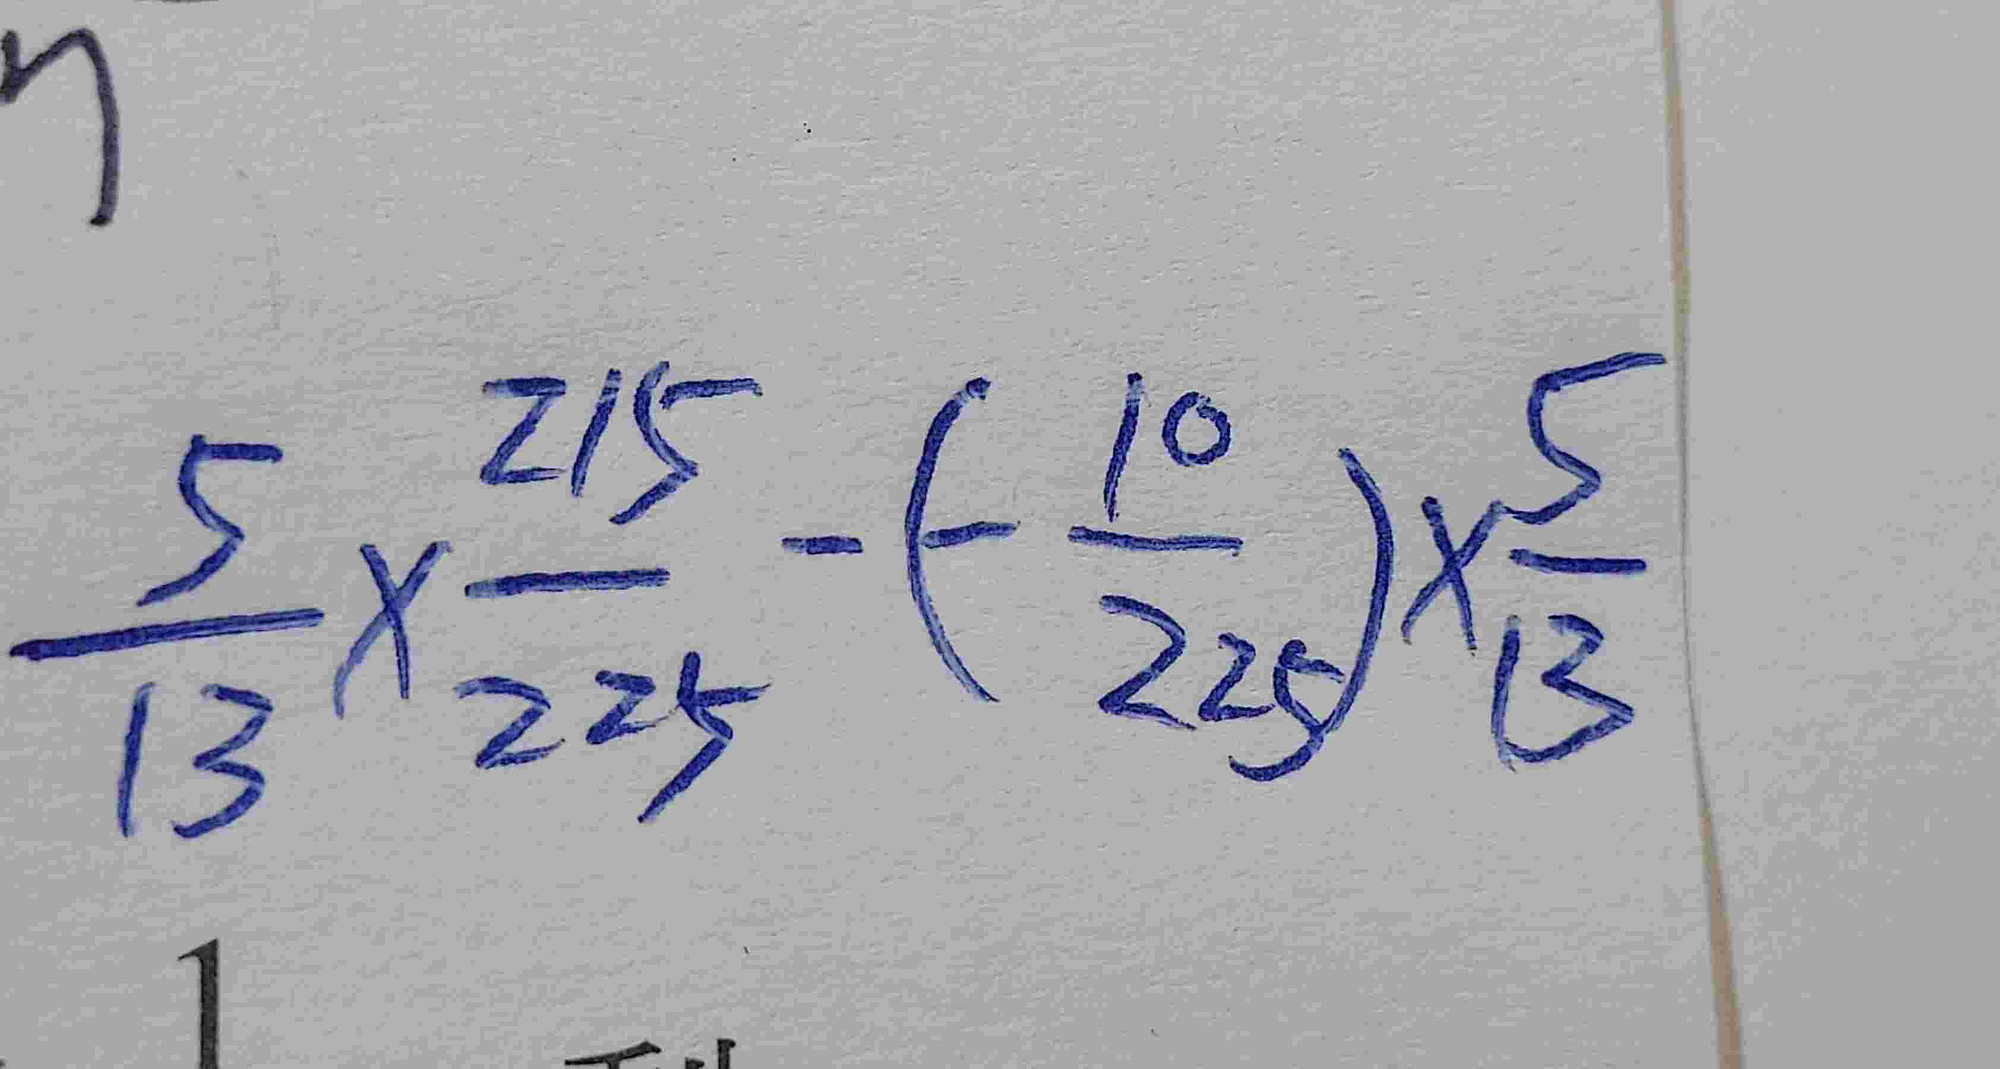 η
5/13 × 215/225 - (- 10/225) × 5/13
1